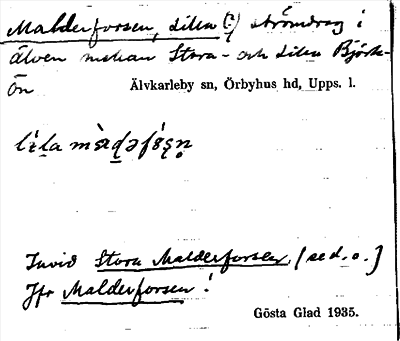 Malderforsen, Lilla (?) strömdrag i
älven mellan Stora- och Lilla Björk-
ön Älvkarleby sn, Örbyhus hd, Upps. l.
Invid Stora Malderforsen (se d. o.)
Jfr Malderforsen!
Gösta Glad 1935.